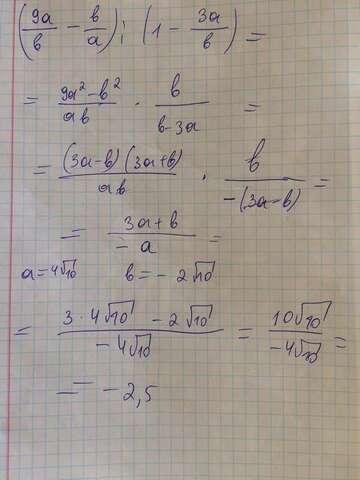 (9a/b − b/a) : (1 − 3a/b) =
= (9a² − b²)/(ab) · b/(b−3a) =
= ((3a−b)(3a+b))/(ab) · b/(−(3a−b)) =
= (3a+b)/(−a) =
a=4√10 b=−2√10
= (3·4√10 − 2√10)/(−4√10) = (10√10)/(−4√10) =
= −2,5